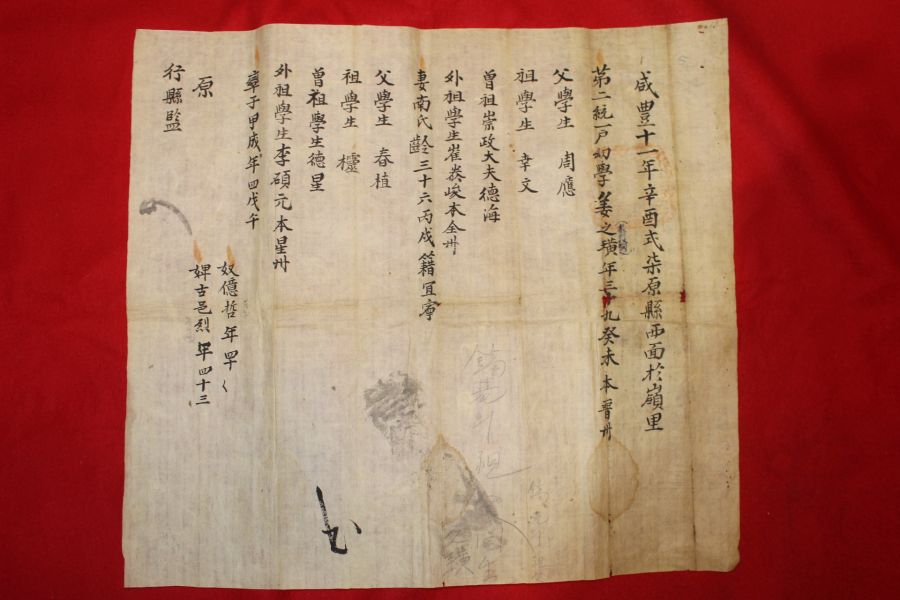 咸豊十一年辛酉式柒原縣西面於嶺里
第二統一戶幼學姜之璜年三十九癸未本晋州
父學生 周應
祖學生 幸文
曾祖崇政大夫德海
外祖學生崔崙峻本全州
妻南氏齡三十六丙戌籍宜寧
父學生 春植
祖學生 櫶
曾祖學生德星
外祖學生李碩元本星州
率子甲成年四戊午
奴億哲年四十
婢古邑烈年四十三
原
行縣監